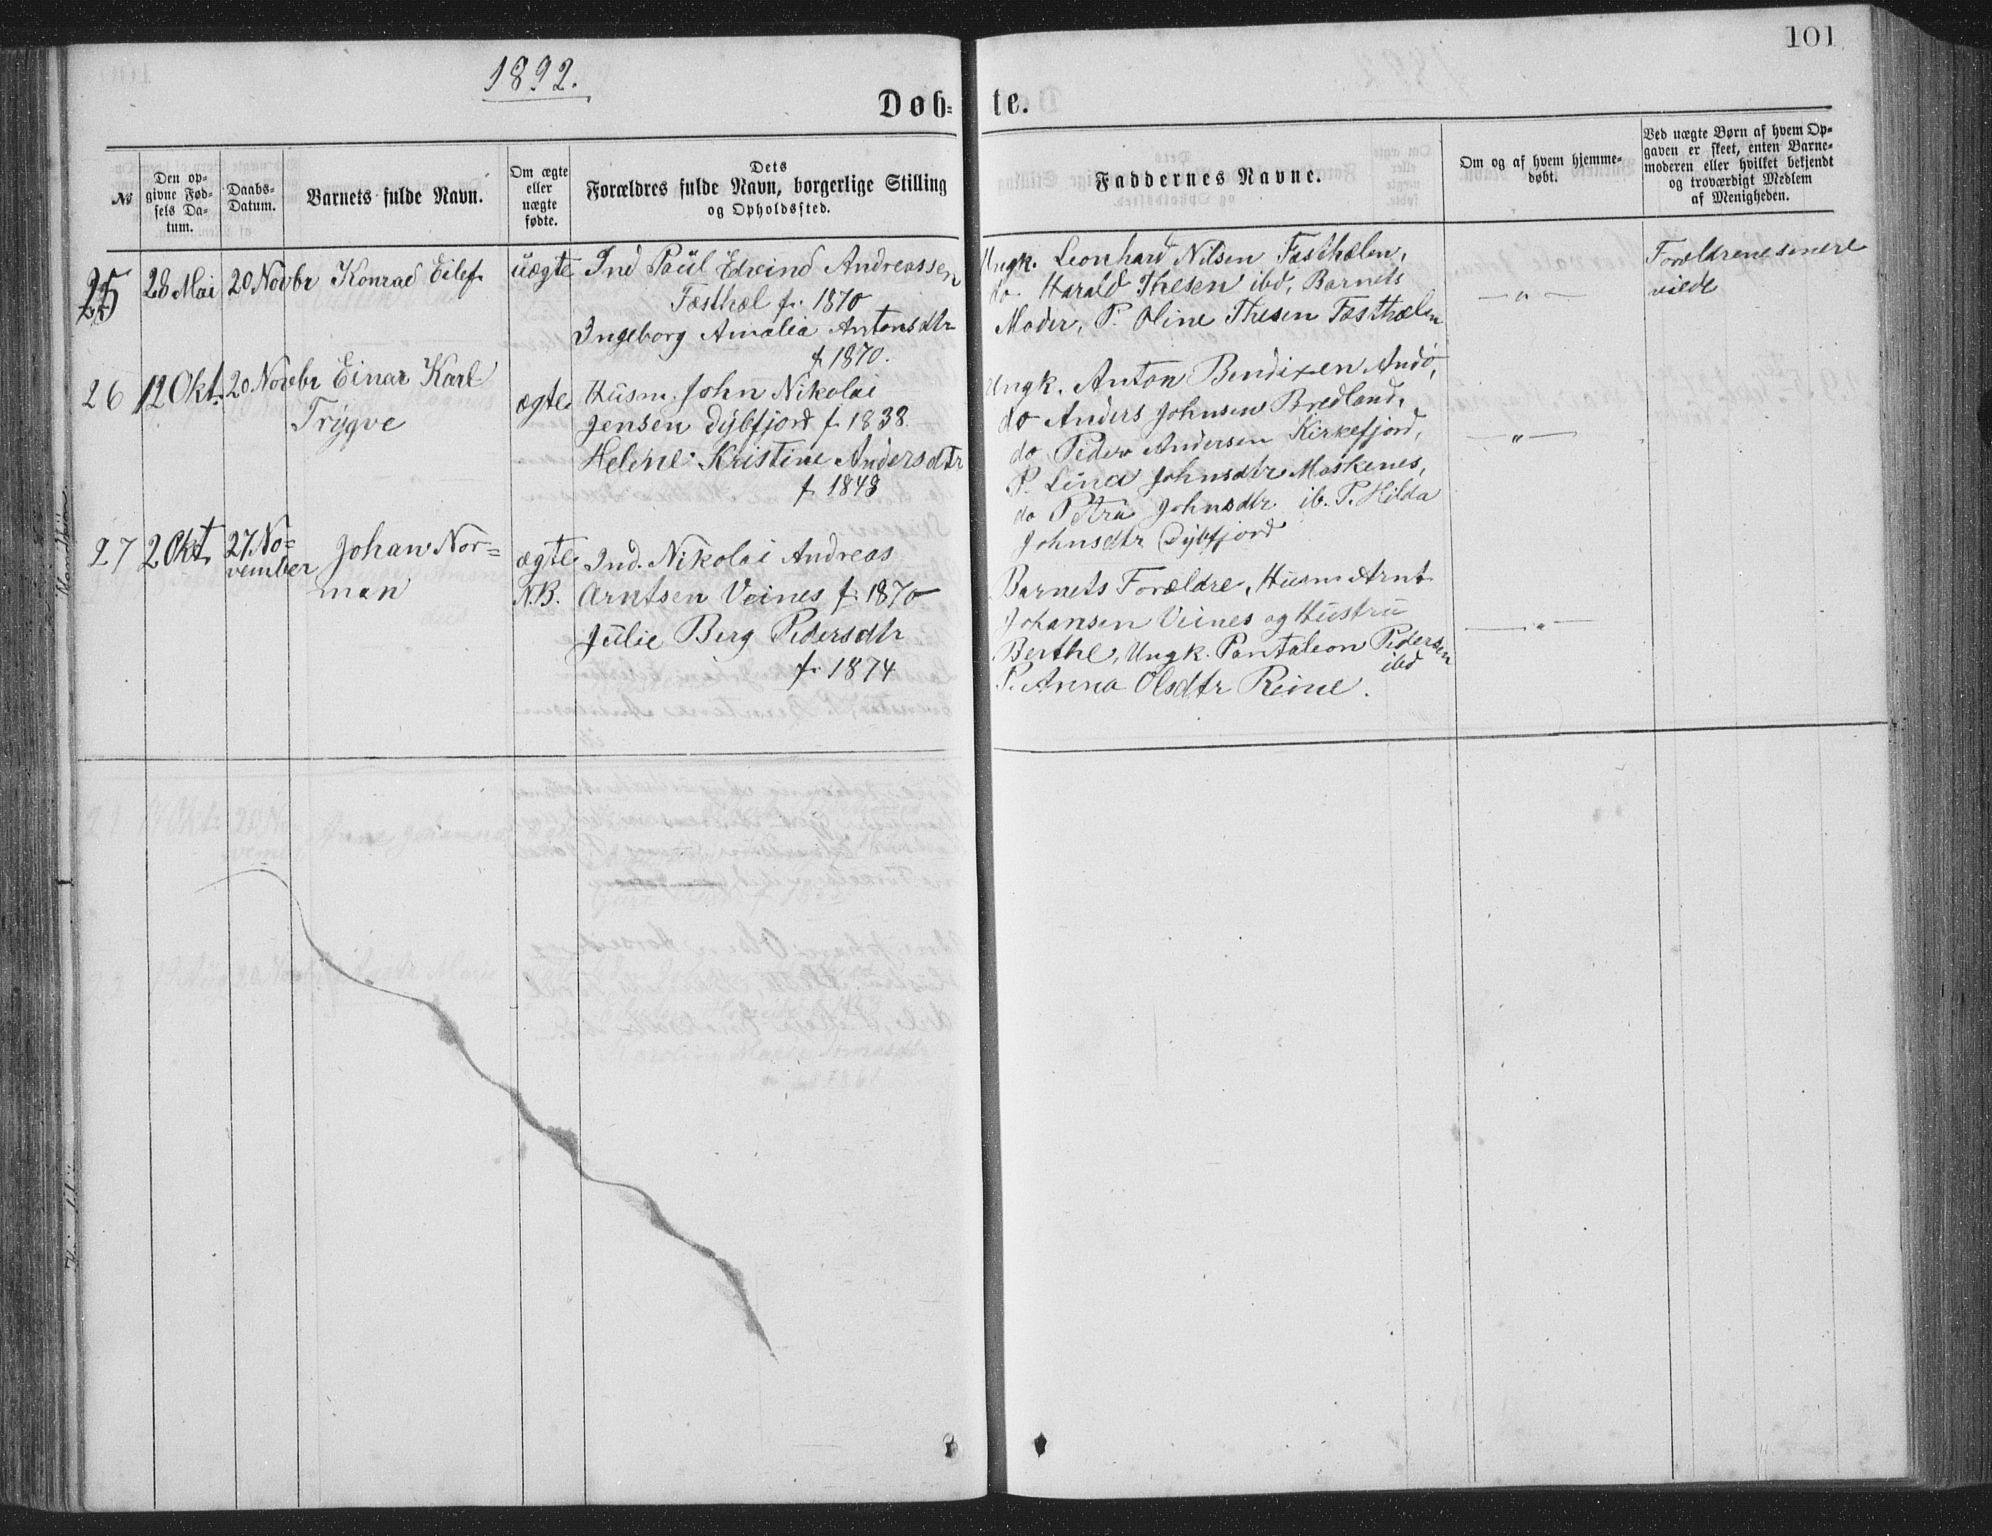 1892.
101
Døb-
te.
№
Den op-
givne Fød-
sels Da-
tum.
Daabs-
Datum.
Barnets fulde Navn.
Om ægte
eller
uægte
fødte.
Dets
Forældres fulde Navn, borgerlige Stilling
og Opholdssted.
Faddernes Navne.
Om og af hvem hjemme-
døbt.
Ved uægte Børn af hvem Op-
gaven er skeet, enten Barne-
moderen eller hvilket bekjendt
og troværdigt Medlem
af Menigheden.
25
28 Mai
20 Novbr
Konrad Eilef
uægte
Ind Paul Edvind Andreassen
Fæsthæl f. 1870
Ingeborg Amalia Antonsdtr
f 1870.
Ungk. Leonhard Nilsen Fæsthælen,
do. Harald Thesen ibd, Barnets
Moder, P. Oline Thesen Fæsthælen
— " —
Forældrene senere
viede
26
12 Okt.
20 Novbr
Einar Karl
Trygve
ægte
Husm. John Nikolai
Jensen Dybfjord f 1838.
Helene Kristine Andersdtr
f 1848
Ungk. Anton Bendixen Andö,
do Anders Johnsen Bredland,
do Peder Andersen Kirkefjord,
P. Lina Johnsdtr Moskenes,
do Petra Johnsdtr ib. P. Hilda
Johnsdtr Dybfjord
— " —
27
2 Okt
27 No-
vember
Johan Nor-
man
ægte
N.B.
Ind. Nikolai Andreas
Arntsen Veines f. 1870
Julie Berg Pedersdtr
f. 1874
Barnets Forældre, Husm Arnt
Johansen Viines og Hustru
Berthe, Ungk. Pantaleon Pedersen
ibd
P. Anna Olsdtr Reine.
— " —